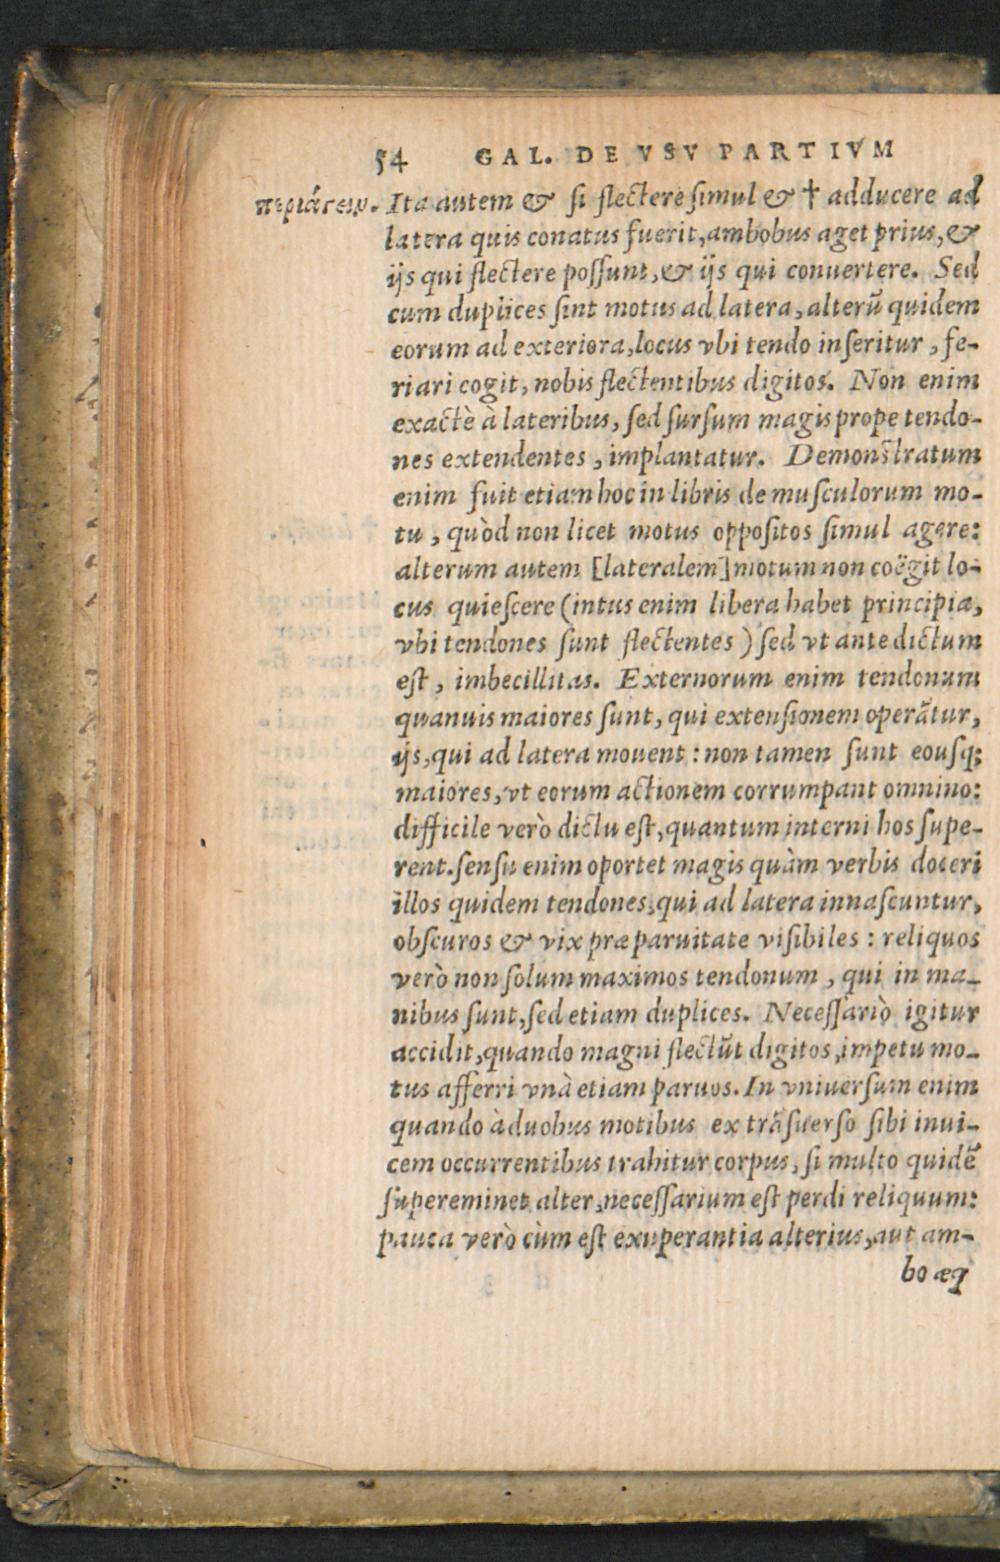 54 GAL. DE VSV PARTIVM
περιάγειν. Ita autem & si flectere simul & † adducere ad
latera quis conatus fuerit, ambobus aget prius, &
ijs qui flectere possunt, & ijs qui conuertere. Sed
cum duplices sint motus ad latera, alterū quidem
eorum ad exteriora, locus vbi tendo inseritur, fe-
riari cogit, nobis flectentibus digitos. Non enim
exactè à lateribus, sed sursum magis prope tendo-
nes extendentes, implantatur. Demonstratum
enim fuit etiam hoc in libris de musculorum mo-
tu, quòd non licet motus oppositos simul agere:
alterum autem [lateralem] motum non coëgit lo-
cus quiescere (intus enim libera habet principia,
vbi tendones sunt flectentes) sed vt ante dictum
est, imbecillitas. Externorum enim tendonum
quanuis maiores sunt, qui extensionem operātur,
ijs, qui ad latera mouent: non tamen sunt eousq;
maiores, vt eorum actionem corrumpant omnino:
difficile verò dictu est, quantum interni hos supe-
rent. sensu enim oportet magis quàm verbis doceri
illos quidem tendones, qui ad latera innascuntur,
obscuros & vix præ paruitate visibiles: reliquos
verò non solum maximos tendonum, qui in ma-
nibus sunt, sed etiam duplices. Necessariò igitur
accidit, quando magni flectūt digitos, impetu mo-
tus afferri vnà etiam paruos. In vniuersum enim
quando à duobus motibus ex trāsuerso sibi inui-
cem occurrentibus trahitur corpus, si multo quidē
supereminet alter, necessarium est perdi reliquum:
pauca verò cùm est exuperantia alterius, aut am-
bo æq